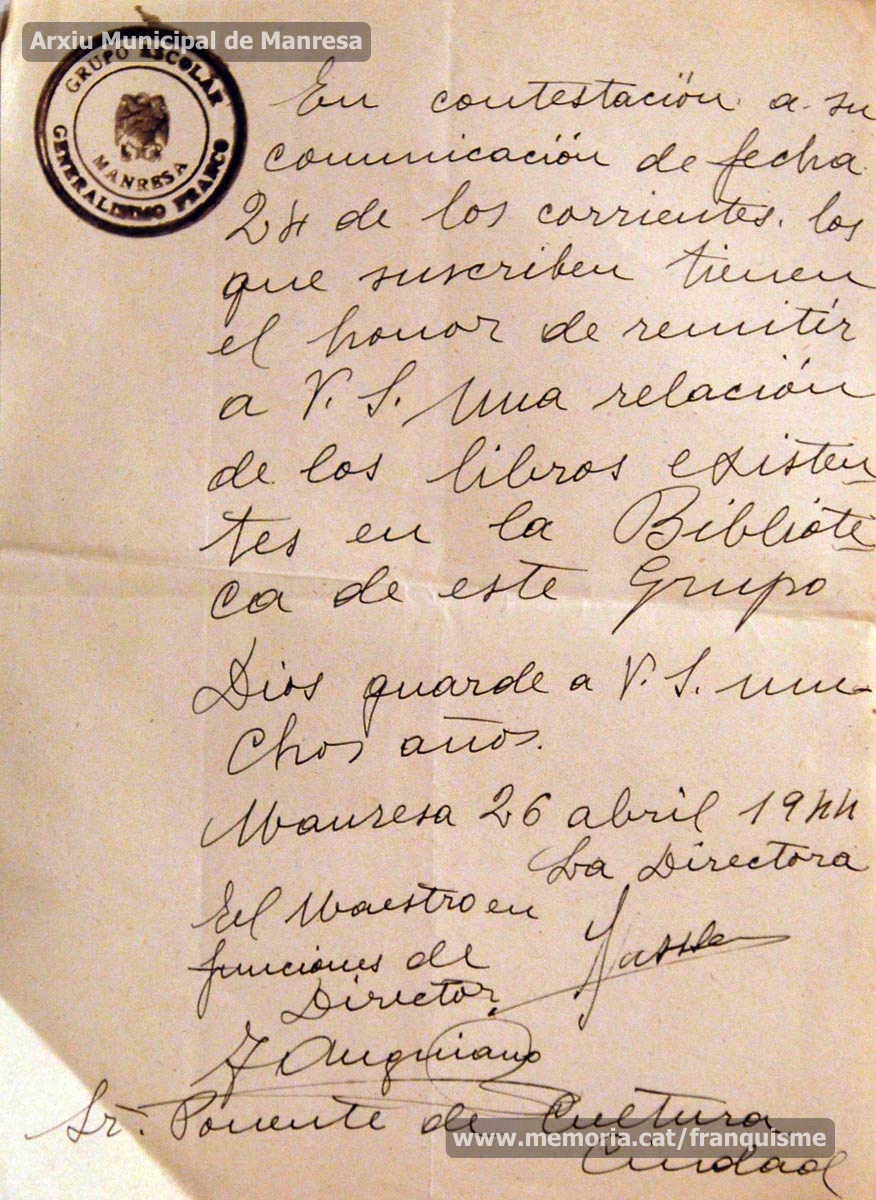 Arxiu Municipal de Manresa
GRUPO ESCOLAR
GENERALISIMO FRANCO
MANRESA
En contestación a su
comunicación de fecha
24 de los corrientes, los
que suscriben tienen
el honor de remitir
a V. S. una relación
de los libros existen
tes en la Bibliote
ca de este Grupo
Dios guarde a V. S. mu-
chos años.
Manresa 26 abril 1944
La Directora
El Maestro en
funciones de
Director
J Anguiano
Sr. Ponente de Cultura
Ciudad
www.memoria.cat/franquisme